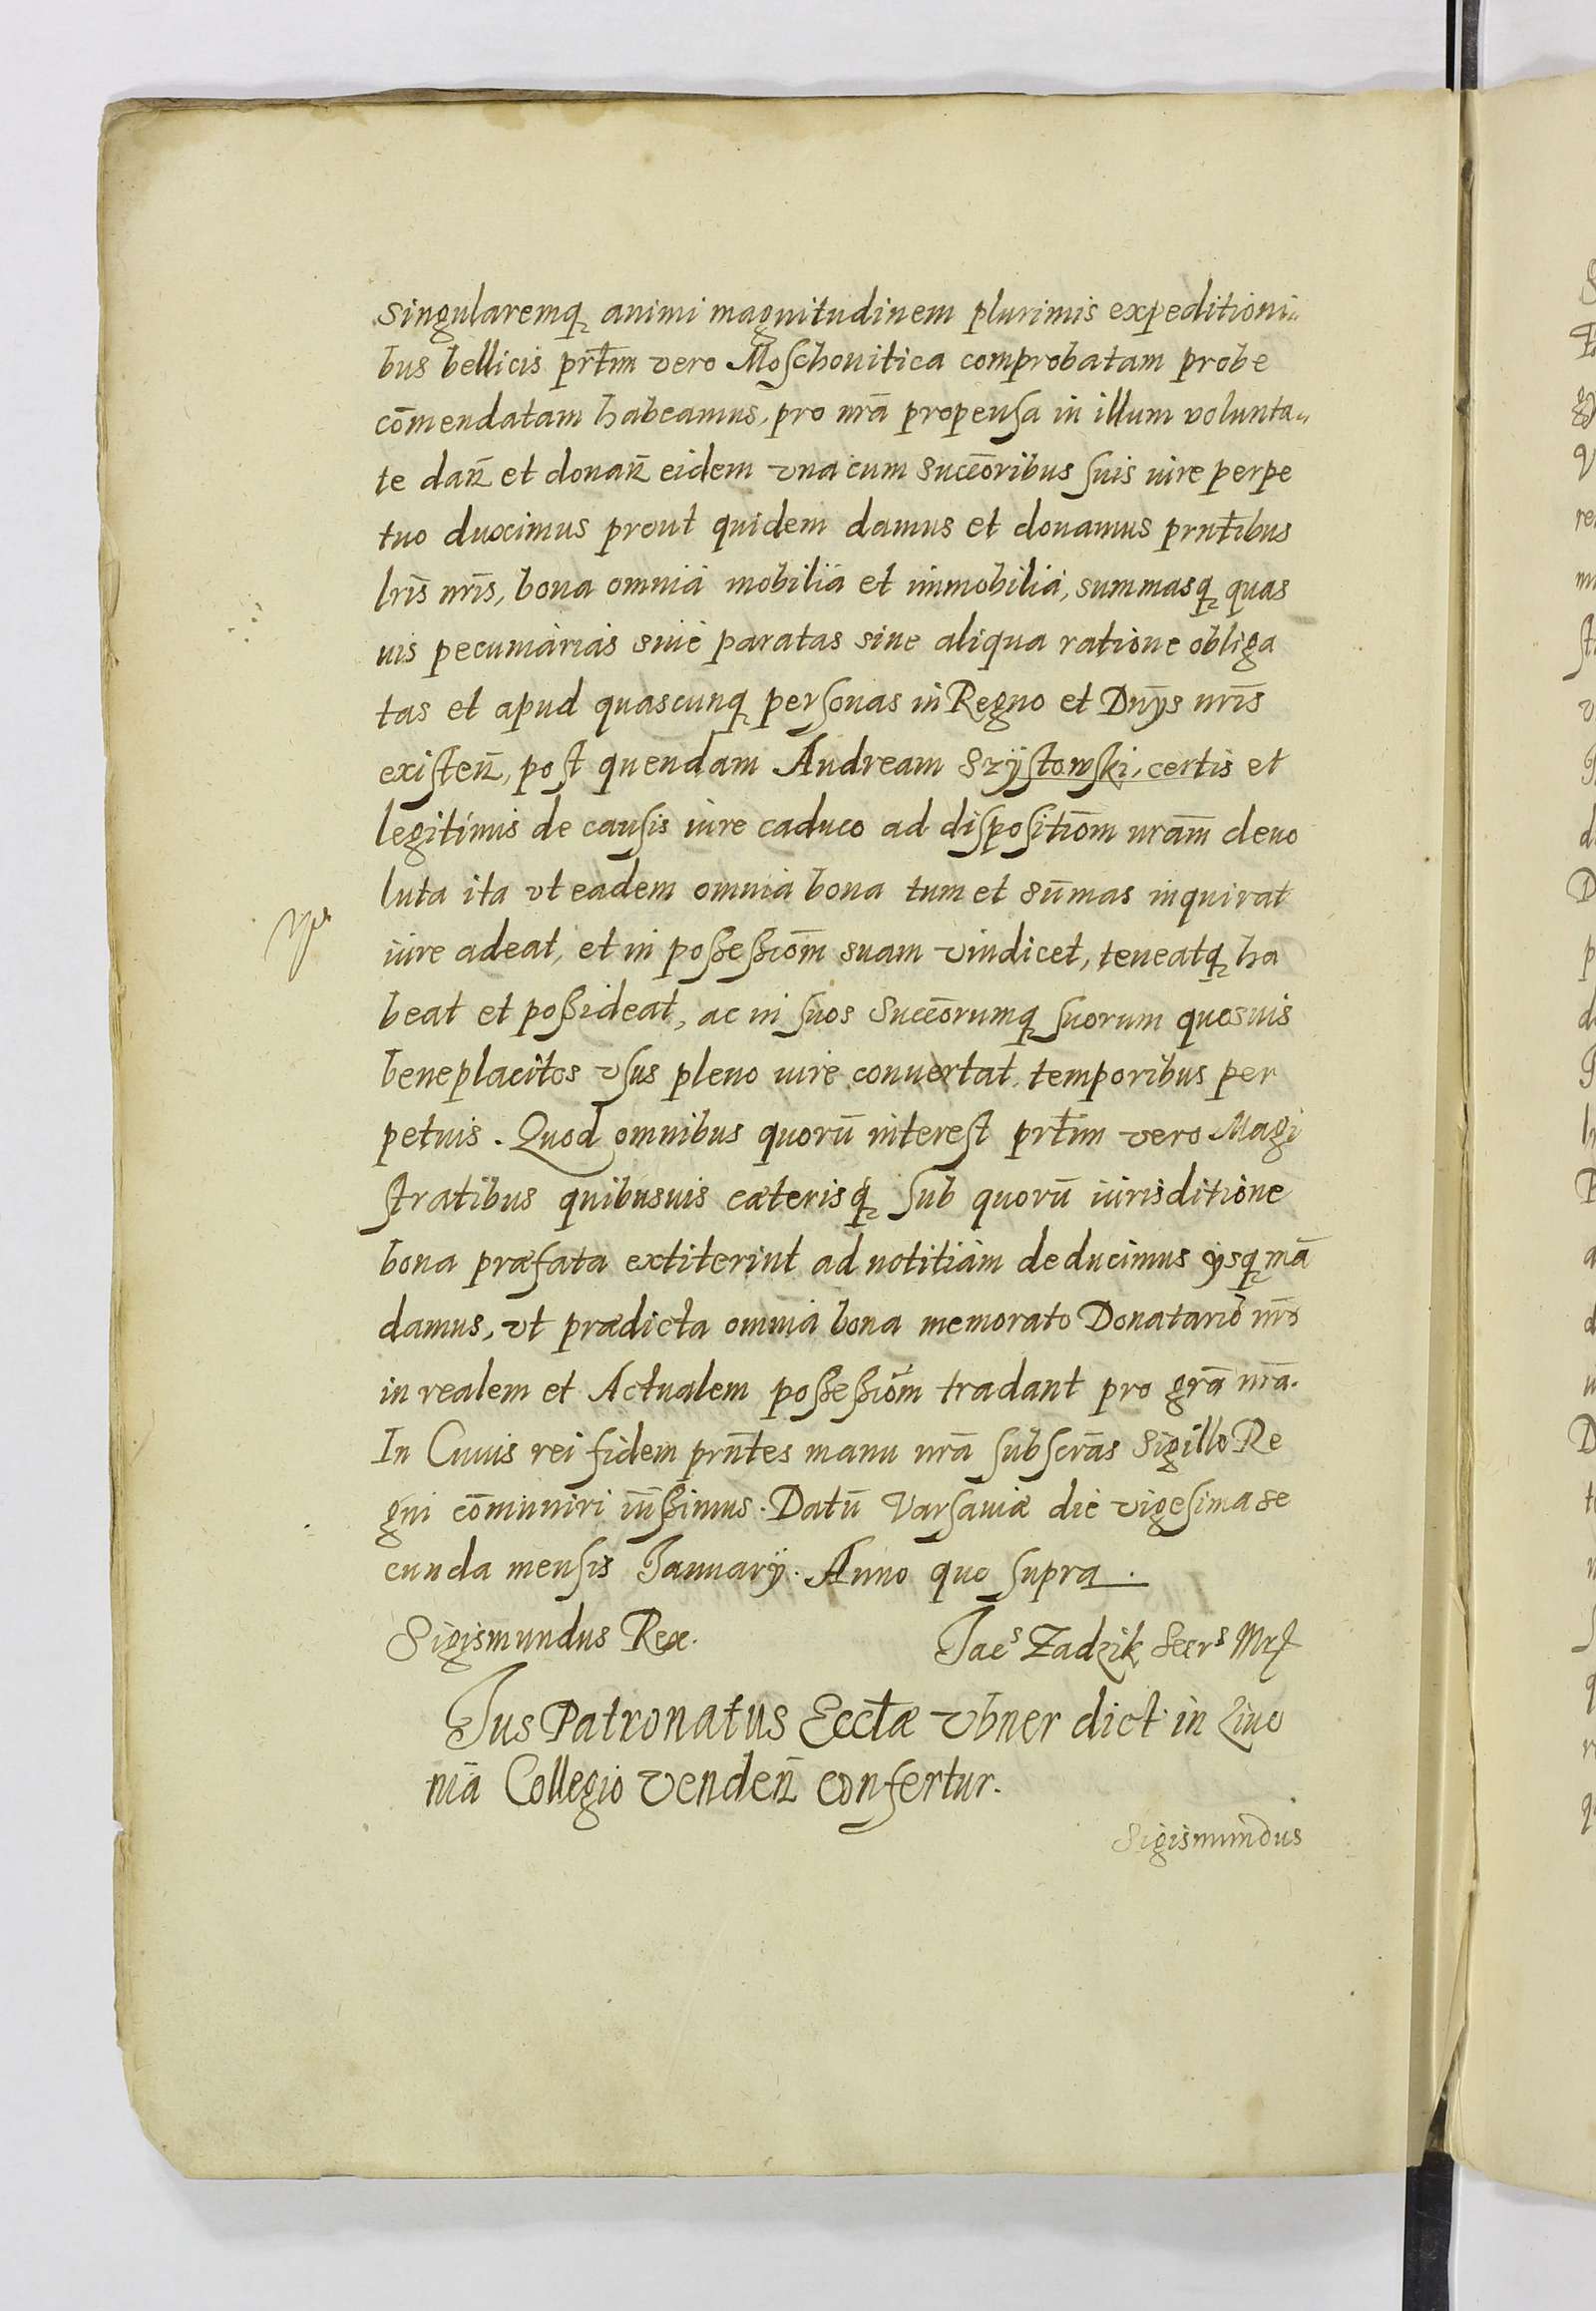 singularemq₃ animi magnitudinem plurimis expeditioni„
bus bellicis prt̄im vero Moschouitica comprobatam probe
cōmendatam habeamus, pro nr̄a propensa in illum volunta„
te dan̄ et donan̄ eidem vna cum Succōribus suis iure perpe
tuo duximus prout quidem damus et donamus prnt̄ibus
lr̄is nr̄is, bona omnia mobilia et immobilia, summasq₃ quas
uis pecuniarias siue paratas siue aliqua ratione obliga
tas et apud quascunq₃ personas in Regno et Dn̄ys nr̄is
existen̄, post quendam Andream Szÿstowski, certis et
legitimis de causis iure caduco ad dispositiōm nr̄am deuo
luta ita vt eadem omnia bona tum et sūmas inquirat
iure adeat, et in possessiōm suam vindicet, teneatq₃ ha
beat et possideat, ac in suos Succōrumq₃ suorum quosuis
beneplacitos vsus pleno iure conuertat temporibus per
petuis. Quod omnibus quorū interest prt̄im vero Magi
stratibus quibusuis cæterisq₃ sub quorū iurisditione
bona præfata extiterint ad notitiam deducimus ysq₃ mā
damus, vt prædicta omnia bona memorato Donatario nr̄o
in realem et Actualem possessiōm tradant pro gr̄a nr̄a.
In Cuius rei fidem prn̄tes manu nr̄a subscr̄as Sigillo Re
gni cōmuniri iussimus. Datū Varsauiæ die vigesima se
cunda mensis Januarÿ. Anno quo supra.
Sigismundus Rex.
Jacˢ Zadzik Secrˢ
Jus Patronatus Ecctæ vbner dict in Liuo
nia Collegio venden̄ confertur.
Sigismundus